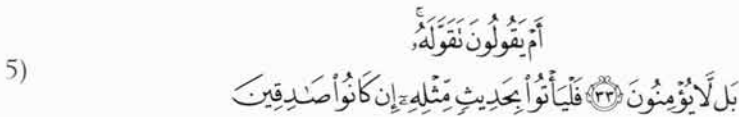 أَمْ يَقُولُونَ تَقَوَّلَهُۥ ۚ
5)
بَل لَّا يُؤْمِنُونَ ﴿٣٣﴾ فَلْيَأْتُوا۟ بِحَدِيثٍ مِّثْلِهِۦٓ إِن كَانُوا۟ صَـٰدِقِينَ